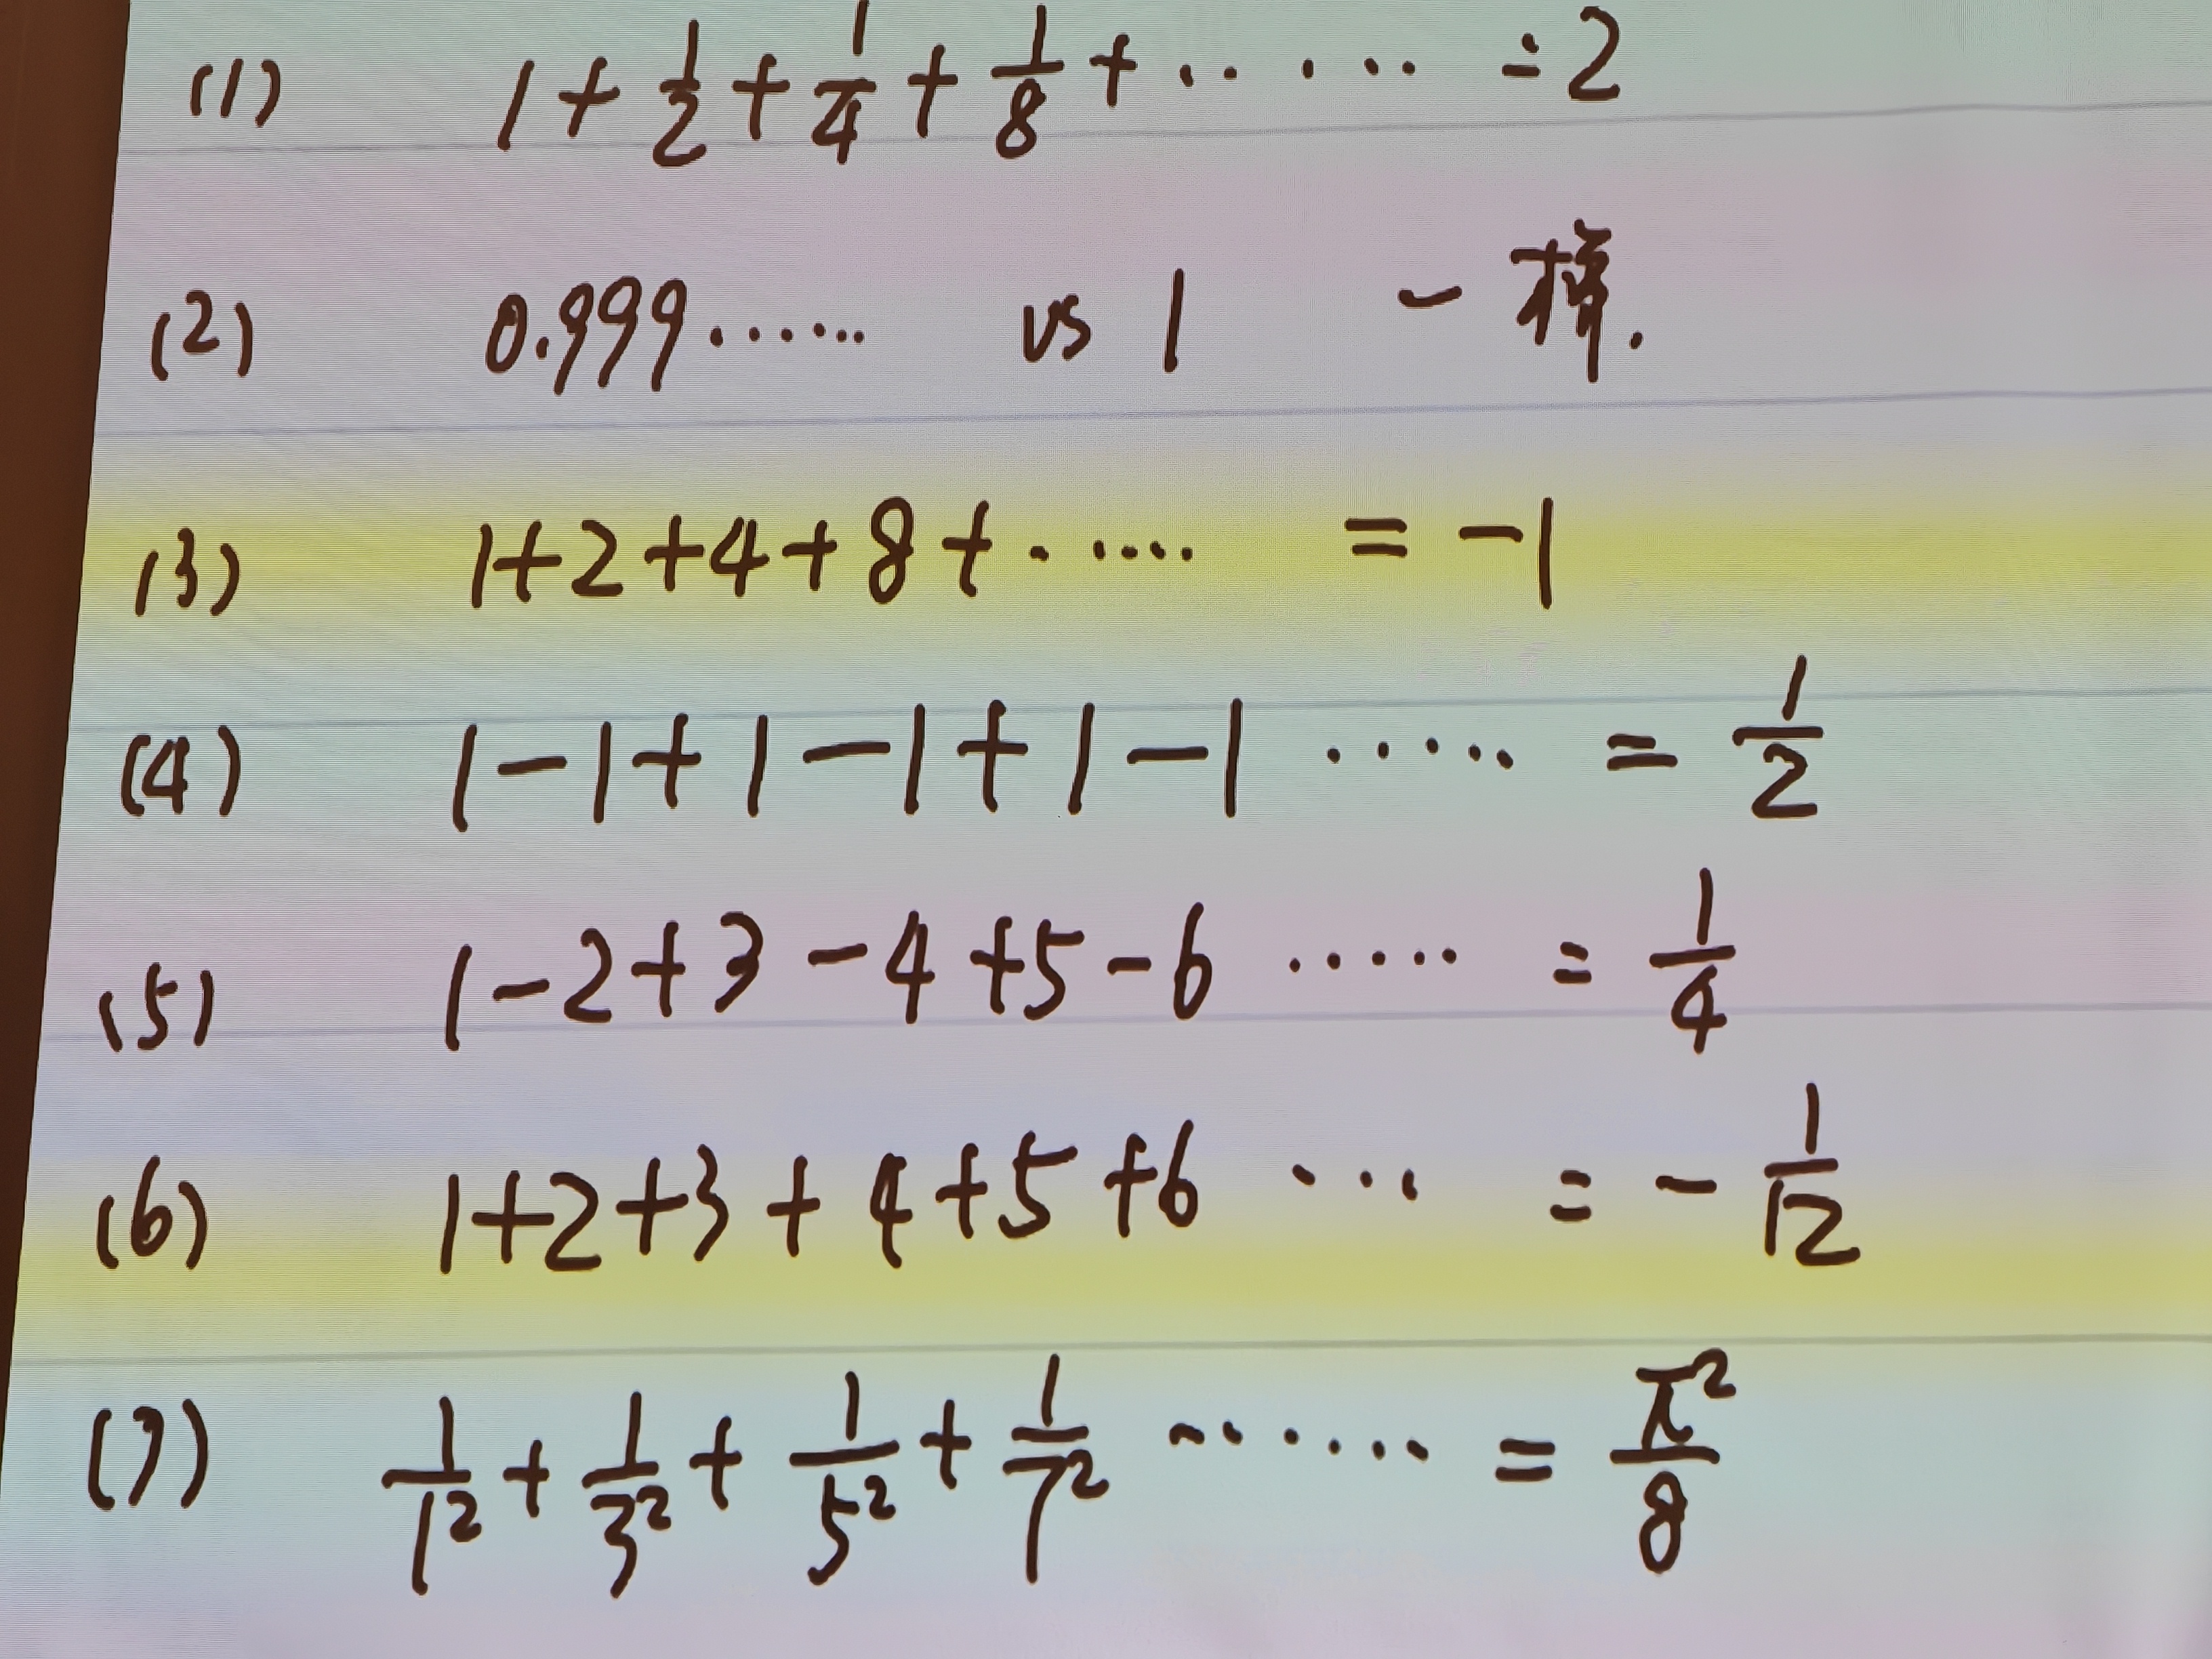 (1) 1+1/2+1/4+1/8+······ =2
(2) 0.999······ vs 1 一样.
(3) 1+2+4+8+····· =-1
(4) 1-1+1-1+1-1 ····· =1/2
(5) 1-2+3-4+5-6 ····· =1/4
(6) 1+2+3+4+5+6 ··· =-1/12
(7) 1/1²+1/3²+1/5²+1/7² ······ =π²/8